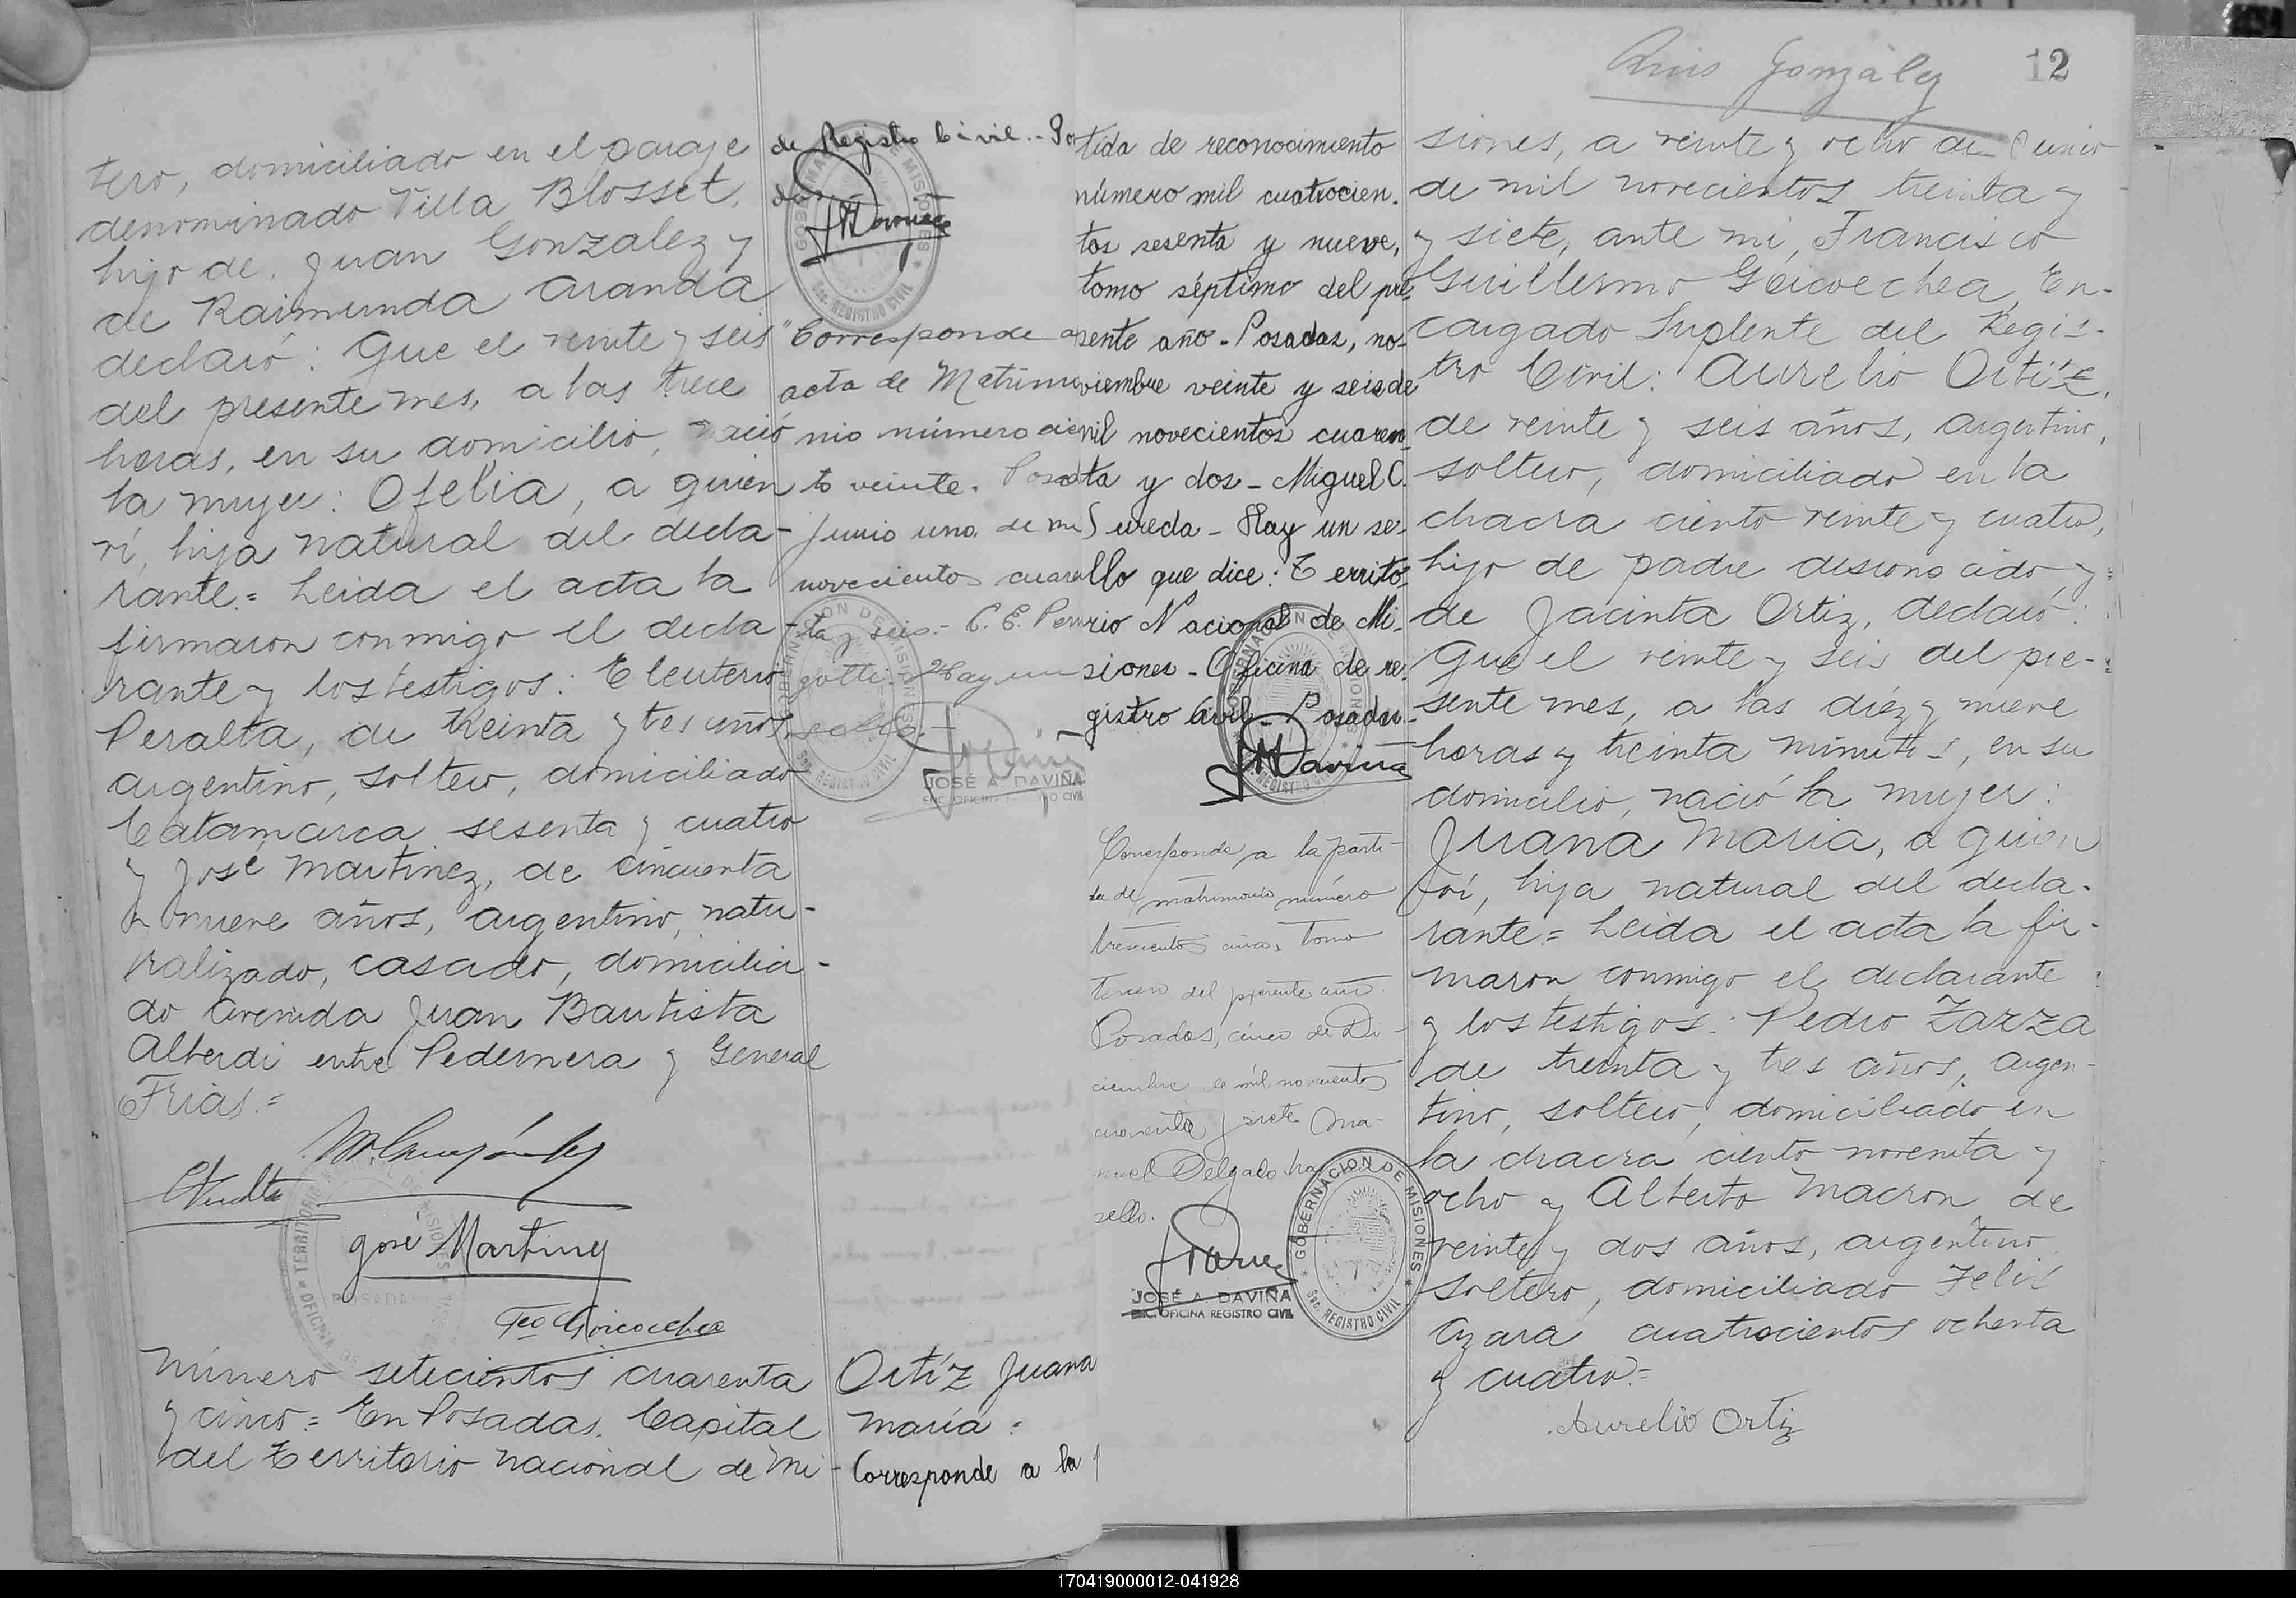 tero, domiciliado en el paraje
denominado Villa Blosset,
hijo de, Juan Gonzalez y
de Raimunda Aranda
declaró: Que el veinte y seis
del presente mes, a las trece
horas, en su domicilio, nació
la mujer: Ofelia, a quien
ví, hija natural del decla-
rante.= Leida el acta la
firmaron conmigo el decla-
rante y los testigos: Eleuterio
Peralta, de treinta y tres años,
argentino, soltero, domiciliado
Catamarca sesenta y cuatro
y José Martinez, de cincuenta
y nueve años, argentino, natu-
ralizado, casado, domicilia-
do Avenida Juan Bautista
Alberdi entre Pedernera y General
Frias.=
José Martinez
Fco Goicoechea
Número setecientos cuarenta
y cinco= En Posadas, Capital
del Territorio Nacional de Mi-
de Registro Civil.- Po
das
GOBERNACION DE MISIONES
Sec. REGISTRO CIVIL
"Corresponde a
acta de Matrimo
nio número cien
to veinte. Posad
Junio uno de mil
novecientos cuaren
ta y seis.- C. E. Per
gotti. Hay un
sello.-
JOSÉ A. DAVIÑA
ENC. OFICINA REGISTRO CIVIL
Ortíz Juana
María =
Corresponde a la
tida de reconocimiento
número mil cuatrocien-
tos sesenta y nueve,
tomo séptimo del pre-
sente año. Posadas, no-
viembre veinte y seis de
mil novecientos cuaren-
ta y dos - Miguel C.
Sureda - Hay un se-
llo que dice: Territo-
rio Nacional de Mi-
siones - Oficina de re-
gistro Civil - Posadas.
GOBERNACION DE MISIONES
Sec. REGISTRO CIVIL
Corresponde a la parti-
da de matrimonio número
trescientos cinco, Tomo
tercero del presente año.
Posadas, cinco de Di-
ciembre de mil novecientos
cuarenta y siete. Ma-
nuel Delgado hay un
sello.
JOSÉ A. DAVIÑA
ENC. OFICINA REGISTRO CIVIL
GOBERNACION DE MISIONES
Sec. REGISTRO CIVIL
González
12
siones, a veinte y ocho de Junio
de mil novecientos treinta y
y siete, ante mi, Francisco
Guillermo Goicoechea, En-
cargado Suplente del Regis-
tro Civil: Aurelio Ortíz,
de veinte y seis años, argentino,
soltero, domiciliado en la
chacra ciento veinte y cuatro,
hijo de padre desconocido y
de Jacinta Ortiz, declaró:
Que el veinte y seis del pre-
sente mes, a las diez y nueve
horas y treinta minutos, en su
domicilio, nació la mujer:
Juana Maria, a quien
ví, hija natural del decla-
rante= Leida el acta la fir-
maron conmigo el declarante
y los testigos: Pedro Zarza
de treinta y tres años, argen-
tino, soltero, domiciliado en
la chacra ciento noventa y
ocho y Alberto Macron de
veinte y dos años, argentino
soltero, domiciliado Felix
Azara cuatrocientos ochenta
y cuatro=
Aurelio Ortiz
170419000012-041928